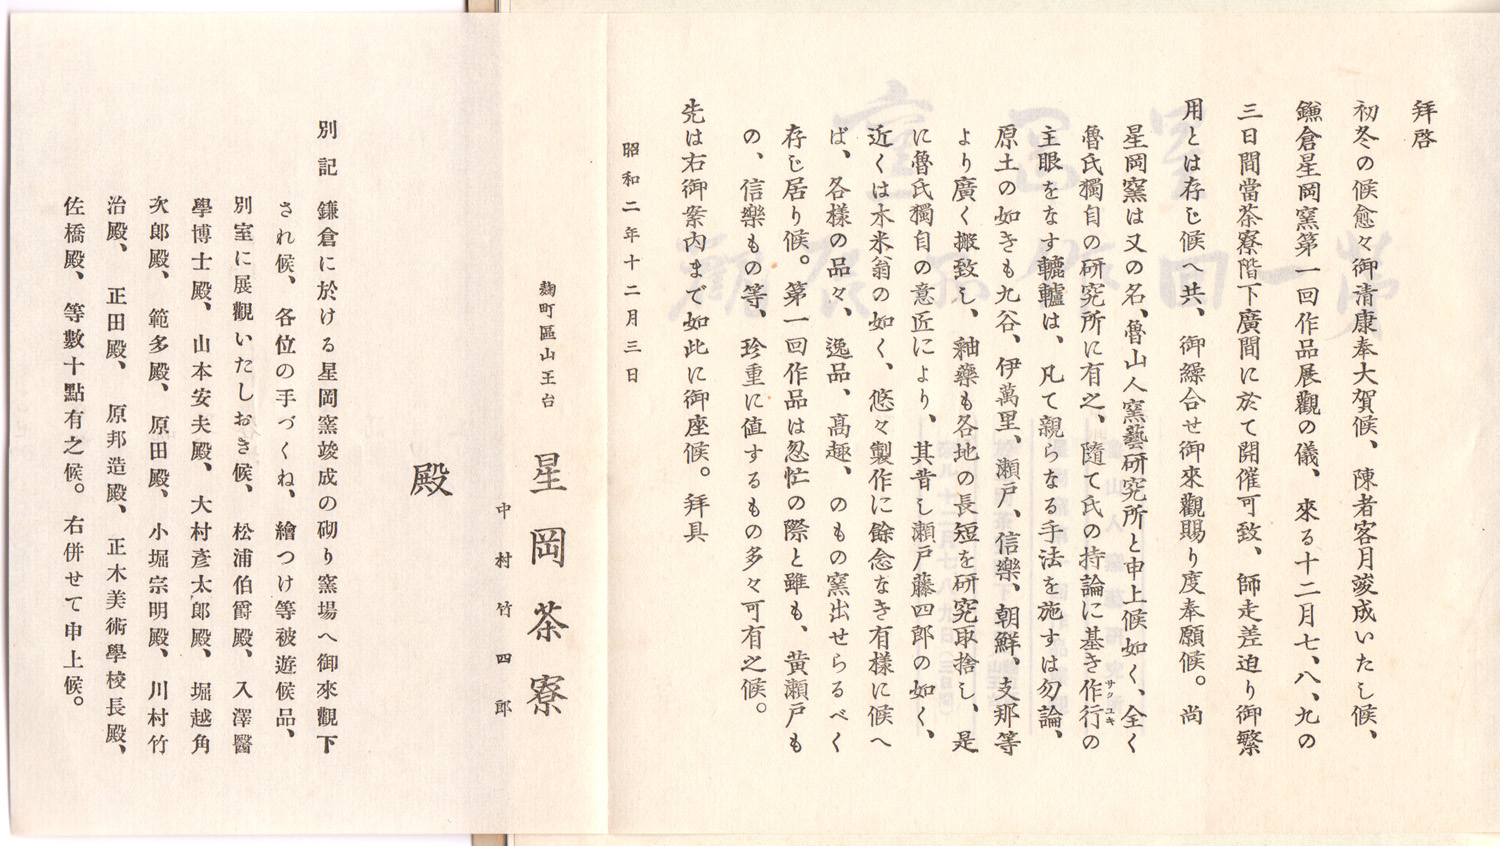 拜啓
初冬の候愈々御清康奉大賀候、陳者客月竣成いたし候、
鎌倉星岡窯第一回作品展觀の儀、來る十二月七、八、九の
三日間當茶寮階下廣間に於て開催可致、師走差迫り御繁
用とは存じ候へ共、御繰合せ御來觀賜り度奉願候。尚
星岡窯は又の名、魯山人窯藝研究所と申上候如く、全く
魯氏獨自の研究所に有之、隨て氏の持論に基き作行の
サクユキ
主眼をなす轆轤は、凡て親らなる手法を施すは勿論、
原土の如きも九谷、伊萬里、瀬戸、信樂、朝鮮、支那等
より廣く搬致し、釉藥も各地の長短を研究取捨し、是
に魯氏獨自の意匠により、其昔し瀬戸藤四郎の如く、
近くは木米翁の如く、悠々製作に餘念なき有樣に候へ
ば、各樣の品々、逸品、高趣、のもの窯出せらるべく
存じ居り候。第一回作品は忽忙の際と雖も、黄瀬戸も
の、信樂もの等、珍重に値するもの多々可有之候。
先は右御案内まで如此に御座候。拜具
昭和二年十二月三日
麹町區山王台
星岡茶寮
中村竹四郎
殿
別記 鎌倉に於ける星岡窯竣成の砌り窯場へ御來觀下
され候、各位の手づくね、繪つけ等被遊候品、
別室に展觀いたしおき候、松浦伯爵殿、入澤醫
學博士殿、山本安夫殿、大村彦太郎殿、堀越角
次郎殿、範多殿、原田殿、小堀宗明殿、川村竹
治殿、正田殿、原邦造殿、正木美術學校長殿、
佐橋殿、等數十點有之候。右併せて申上候。